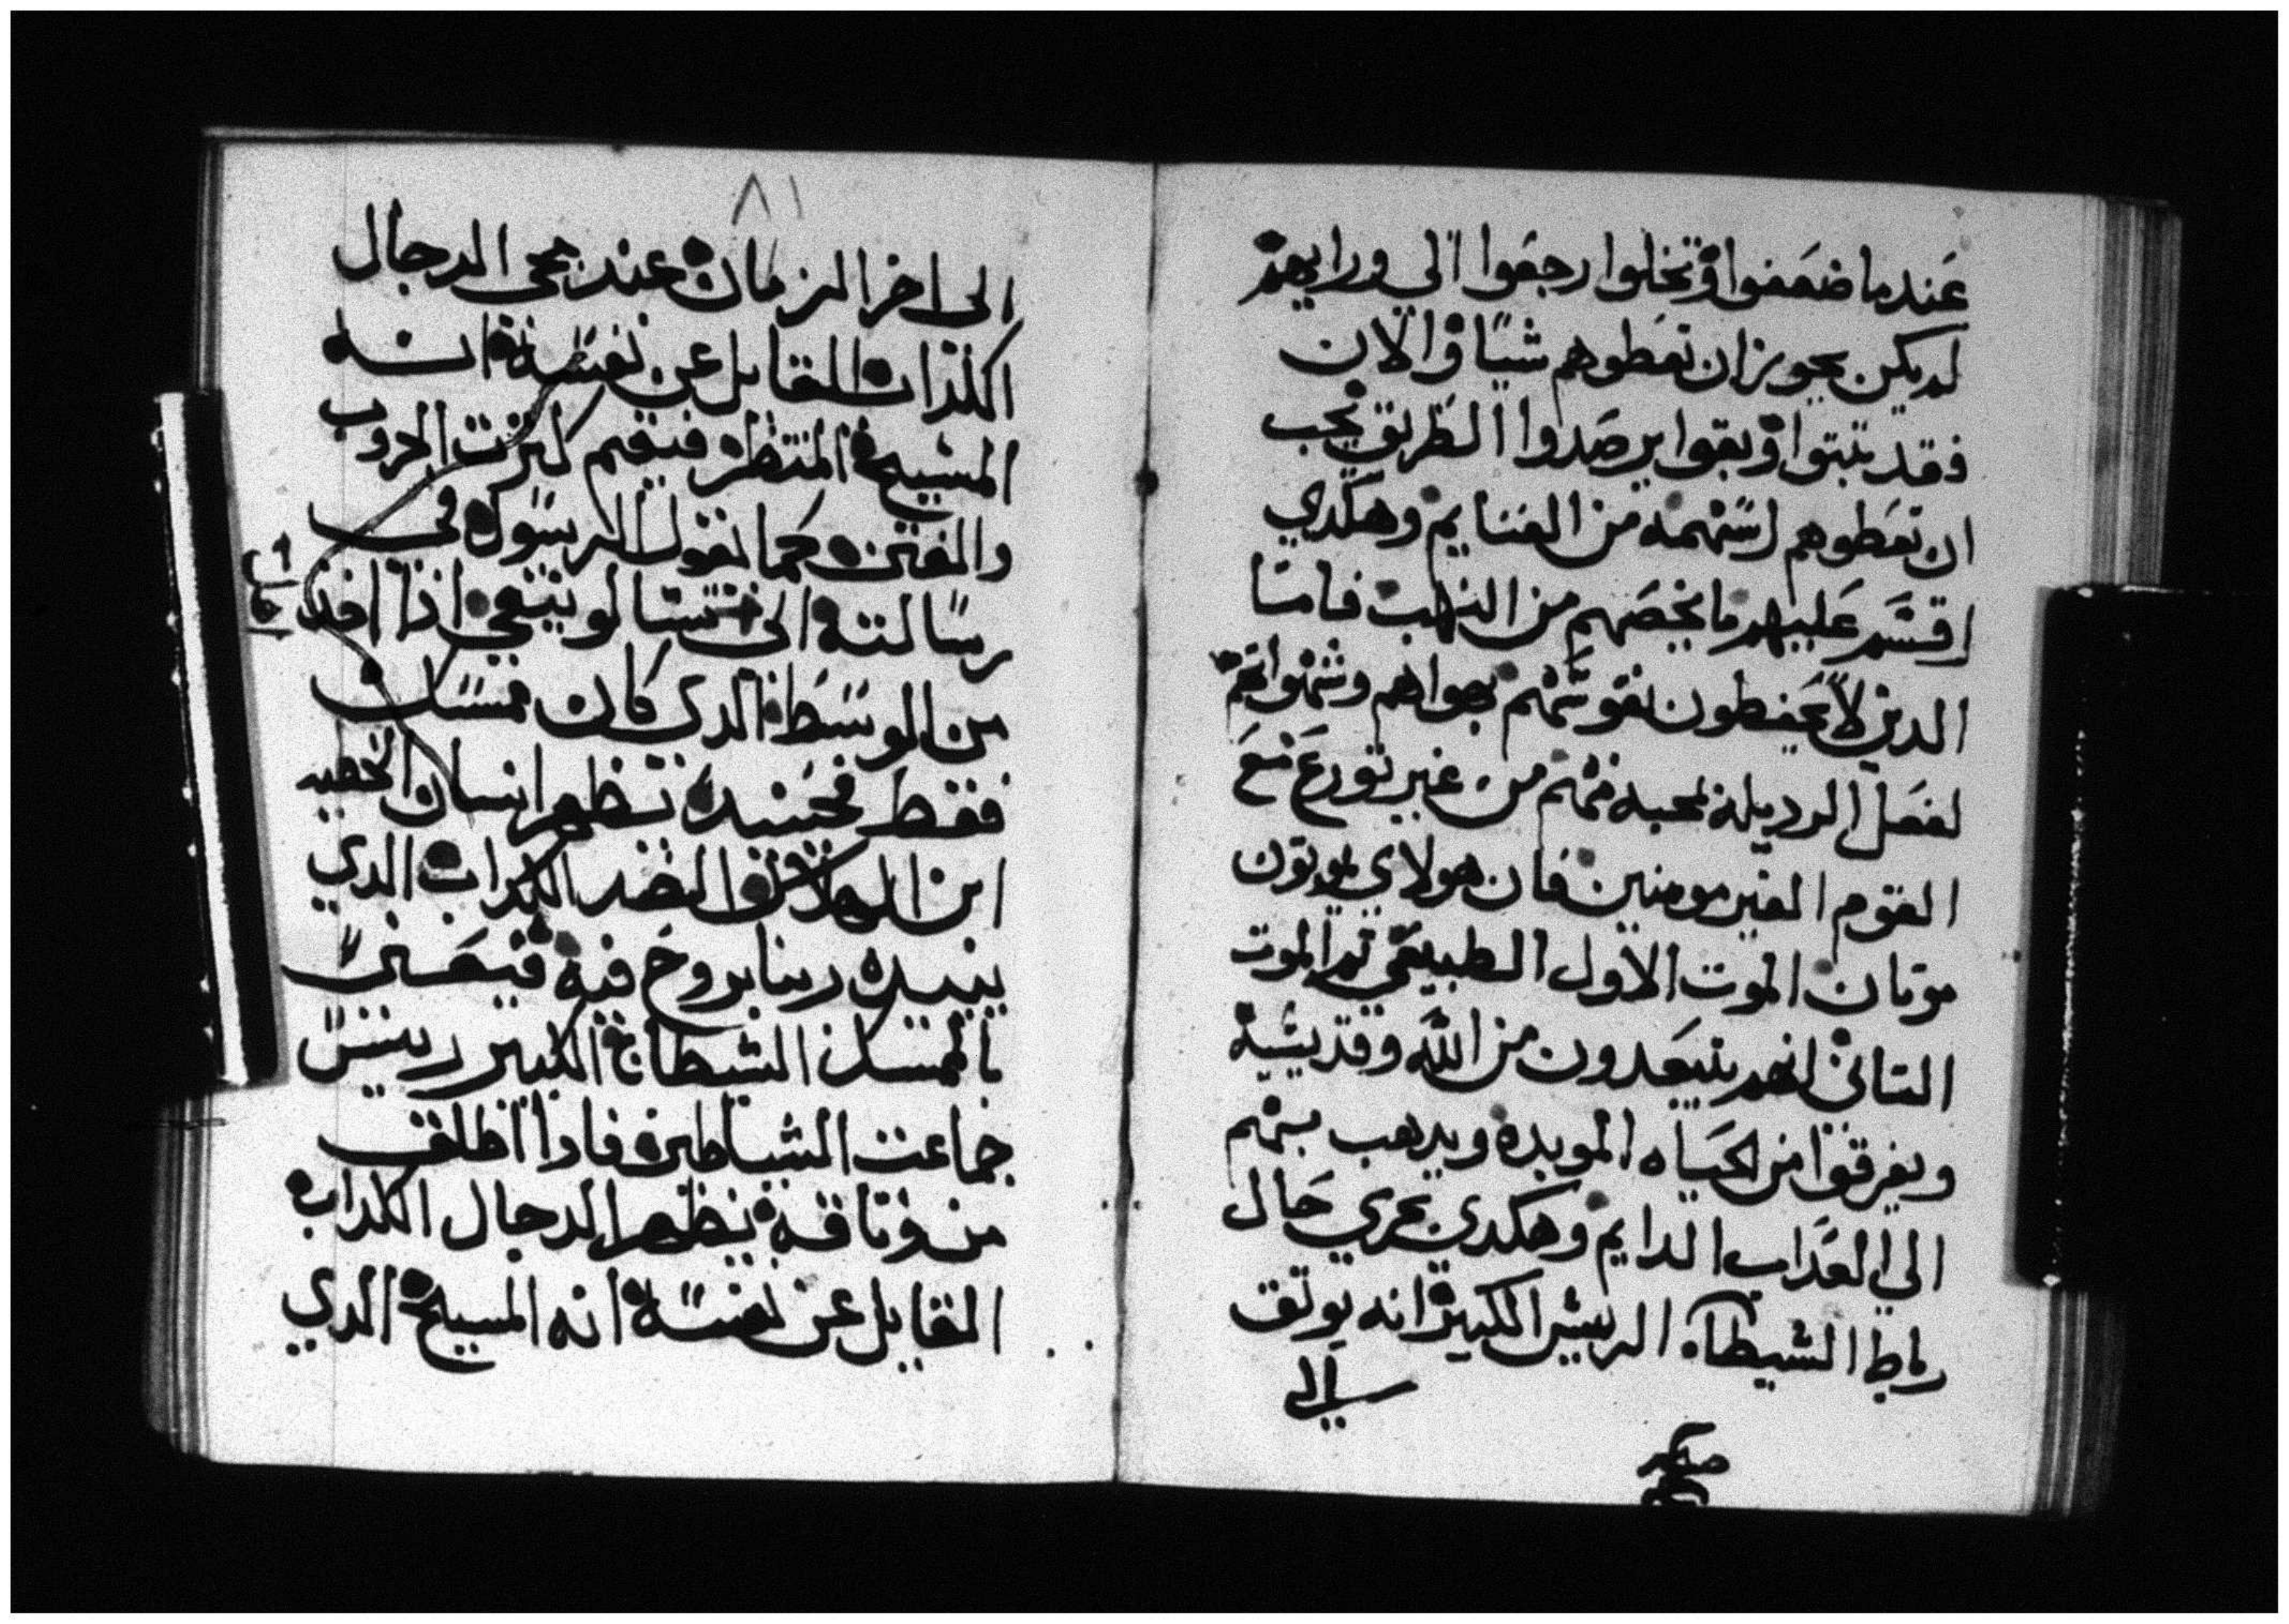 عندما ضعفوا وتخلوا رجعوا الي ورايهم
لم يكن يجوز ان تعطوهم شيا والان
فقد تبتوا وبقوا يرصدوا الطريق يجب
ان تعطوهم اسهمه من الغنايم وهكدي
اقسم عليهم ما يخصهم من النهب فاما
الدين لا يحفطون نفوسهم بهواهم وشهواتهم
لفعل الرديله محبه منهم من غير تورع مع
القوم الغير مومنين فان هولاي يموتون
موتان الموت الاول الطبيعي تم الموت
التاني انهم يتبعدون من الله وقد يشبه
ويفرقوا من الحياه الموبده ويدهب بهم
الي العداب الدايم وهكدي يجري حال
رباط الشيطان الريس الكبير انه يوتق
الي
٨١
الي اخر الزمان عند مجي الدجال
الكداب القايل عن نفسه انه
المسيح المنتظر فيقيم كترت الحروب
والفتن كما يقول الرسول في
رسالته الي تسالونيقي ادا اخد
من الوسط الدي كان ممسك
فقط فحينيد يظهر انسان الخطيه
ابن الهلاك الضد الكداب الدي
يبيده ربنا بروح فيه
الشيطان الكبير رييس
جماعت الشياطين فادا اطلق
من وتاقه يظهر الدجال الكداب
القايل عن نفسه انه المسيح الدي